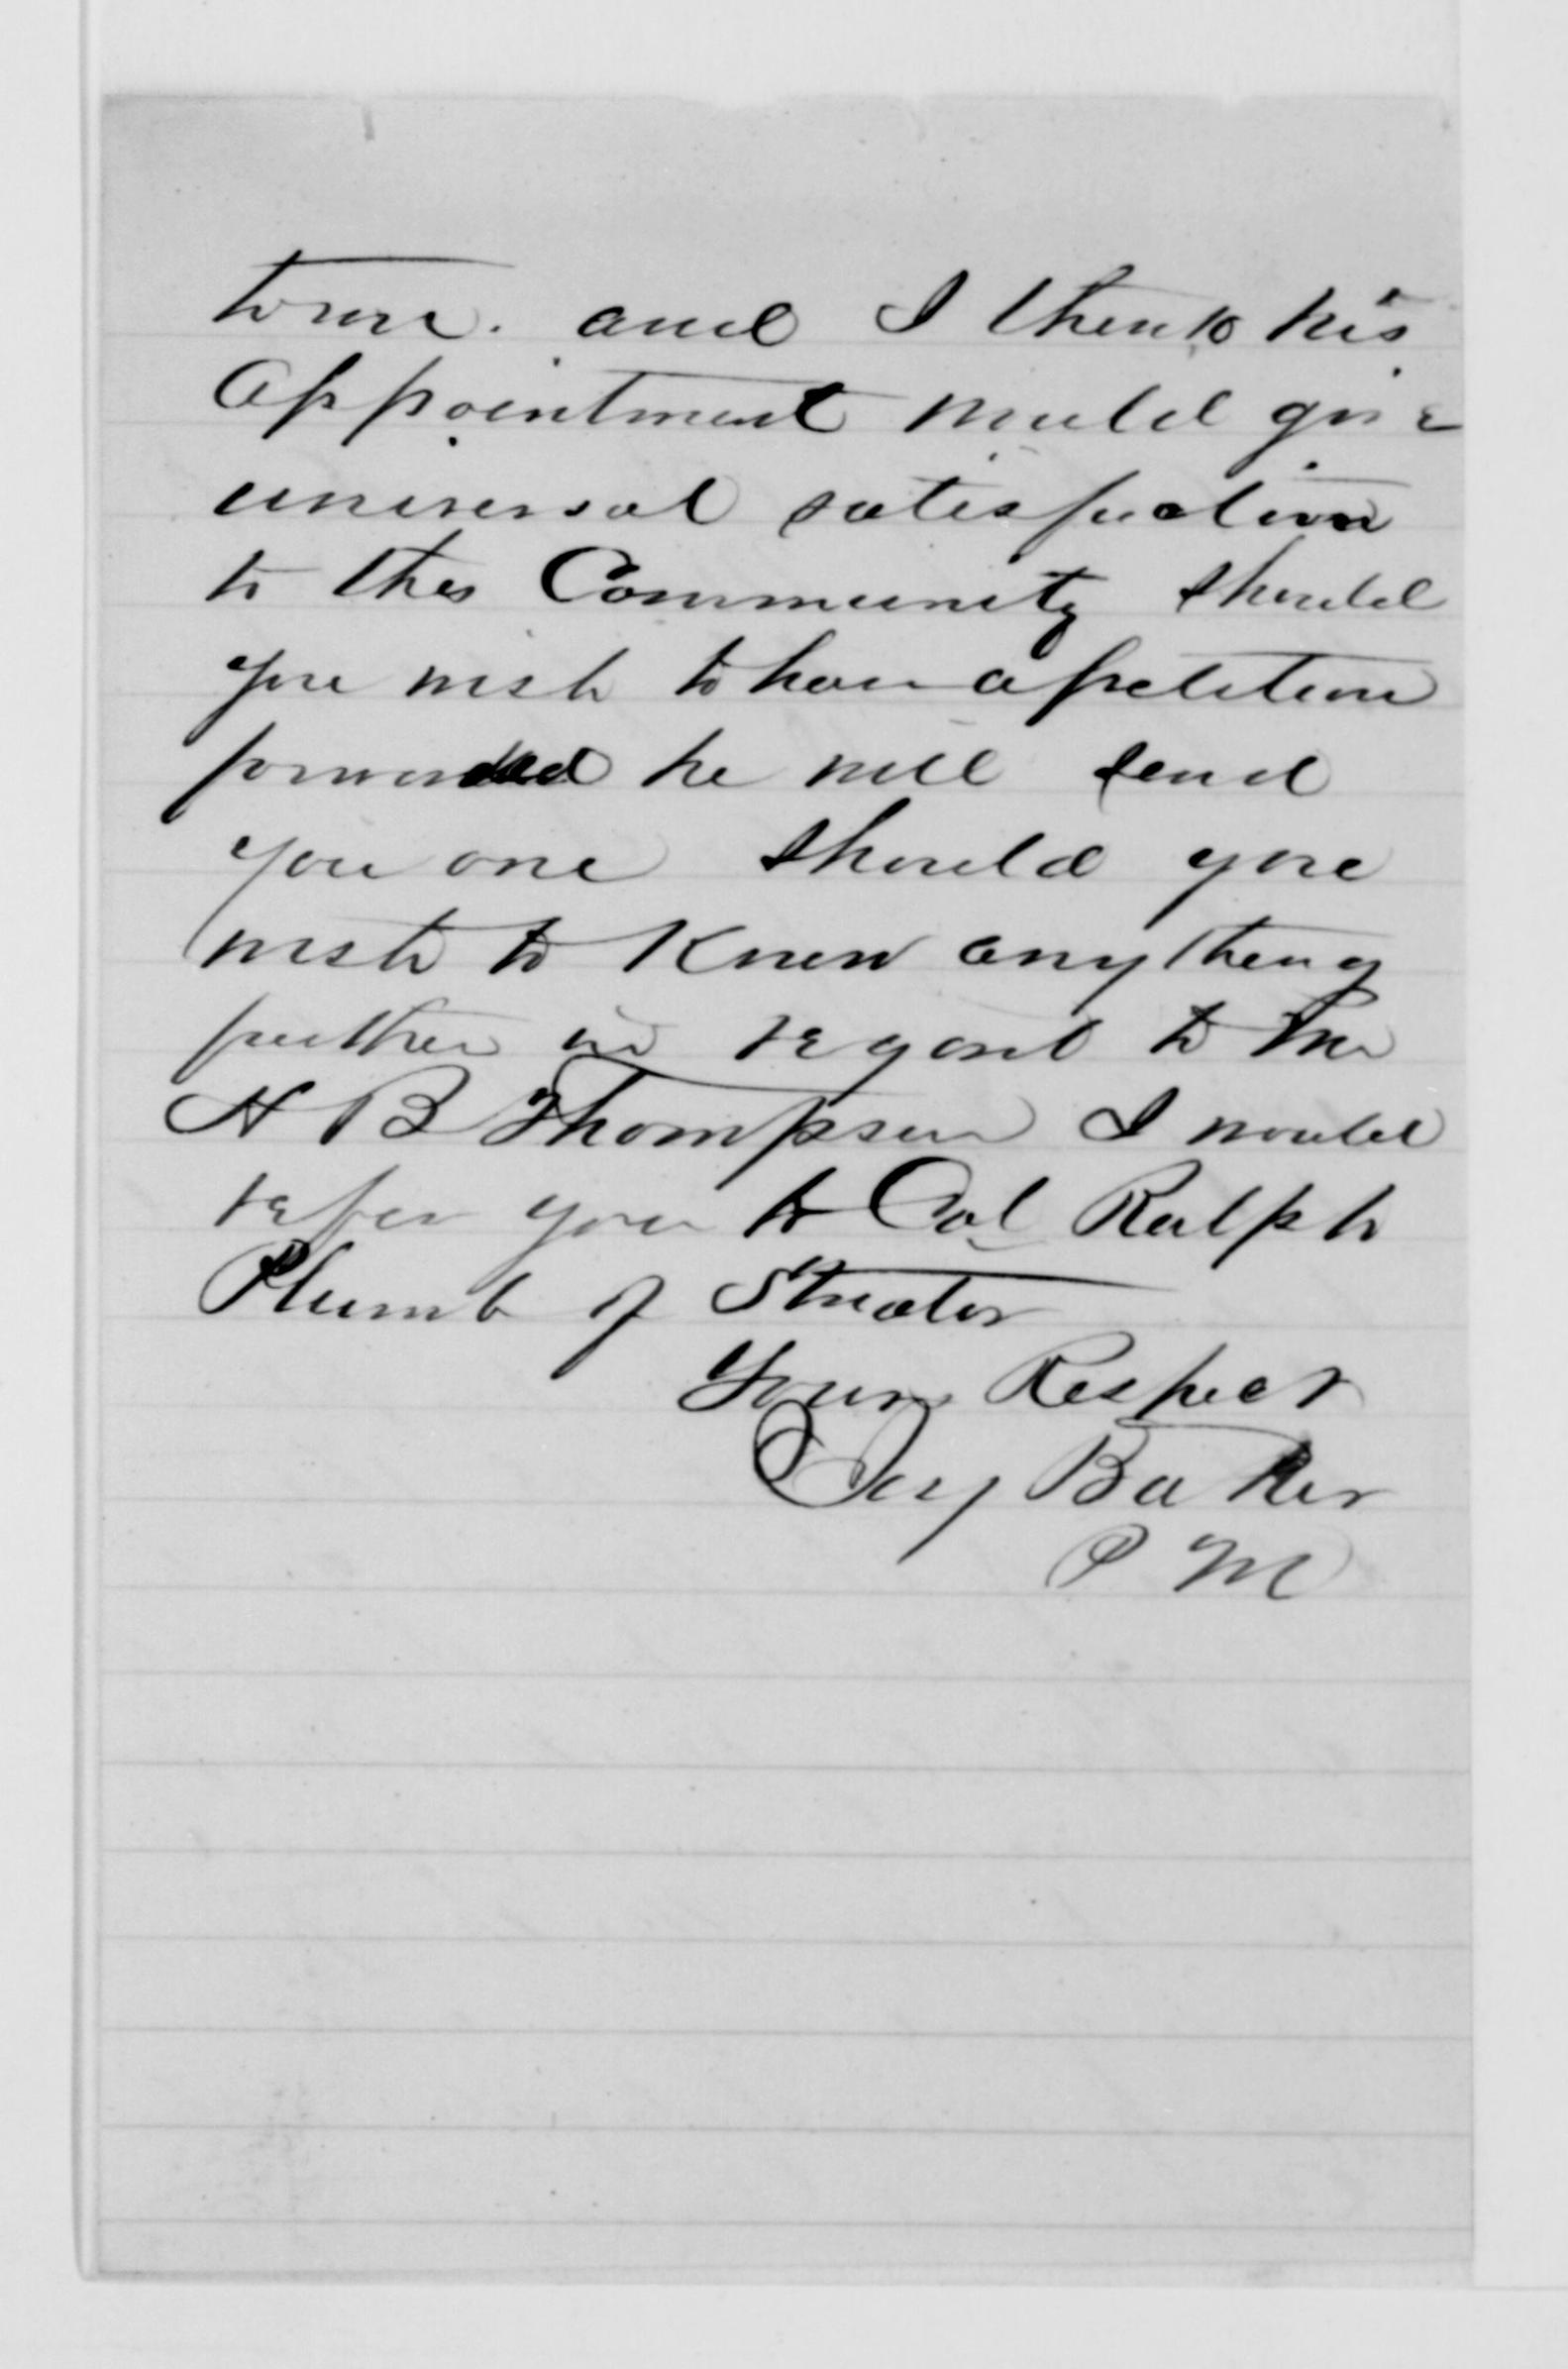 town. and I think his
Appointment would give
universal satisfaction
to this Community should
you wish to have a petition
forwarded he will send
you one should you
wish to Know anything
further in regard to Mr
N B Thompson I would
refer you to Col Ralph
Plumb of Streator
Yours Respect
Jay Baker
P M